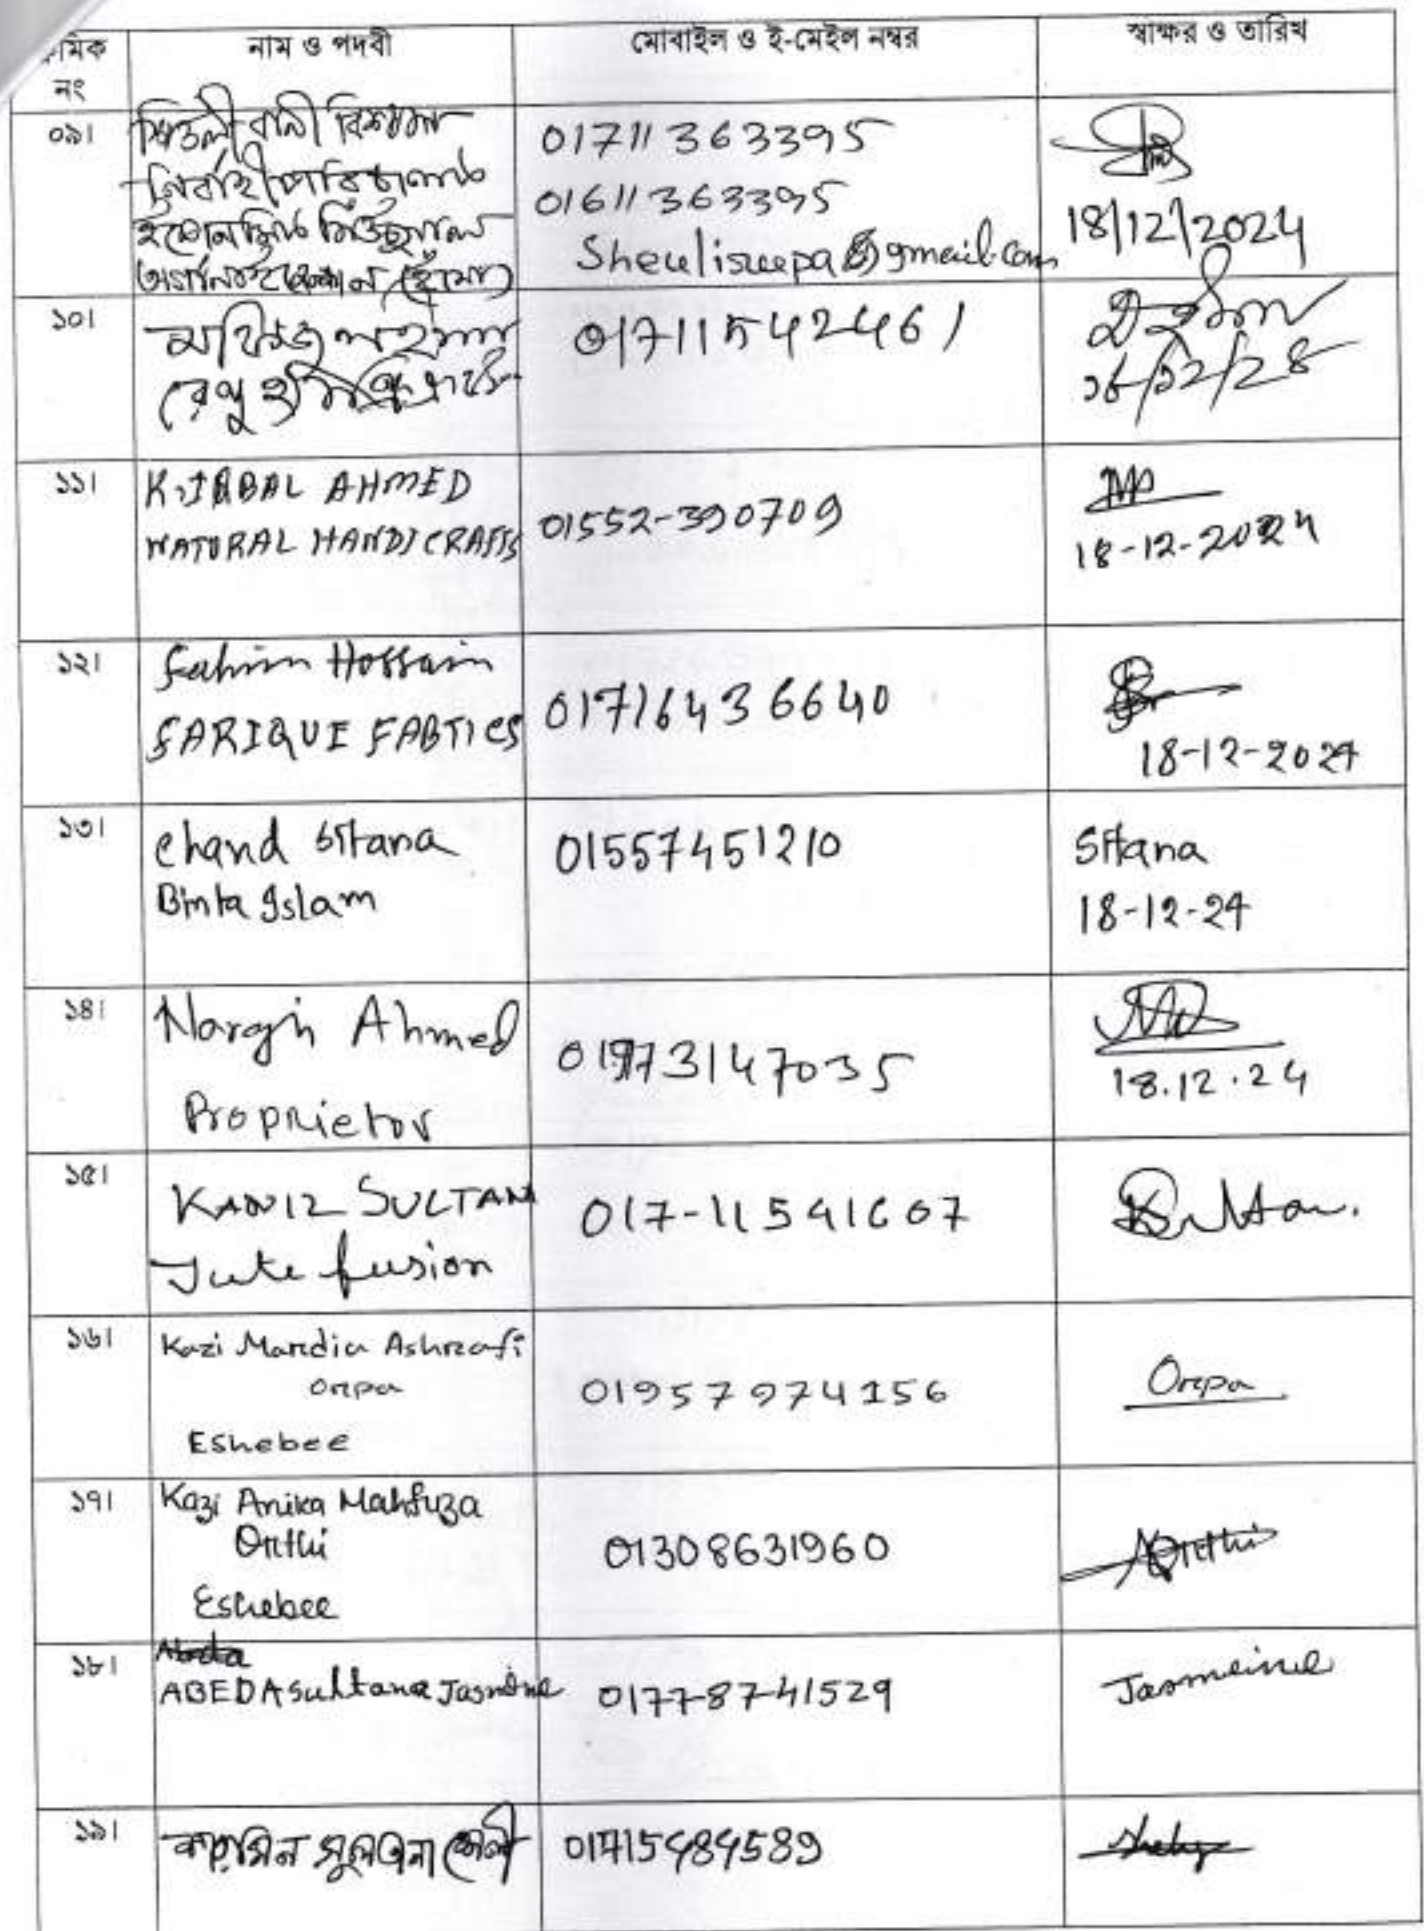 ক্রমিক নং
নাম ও পদবী
মোবাইল ও ই-মেইল নম্বর
স্বাক্ষর ও তারিখ
০৯।
শিউলী রানী বিশ্বাস
নির্বাহী পরিচালক
01711363395
01611363395
@gmail.com
18/12/2024
১০।
01711542461
১৮/১২/২৪
১১।
K. IQBAL AHMED
NATURAL HANDICRAFTS
01552-390709
18-12-2024
১২।
Fahim Hossain
FARIQUE FABTICS
01716436640
18-12-2024
১৩।
Chand Sitana
Binta Islam
01557451210
Sitana
18-12-24
১৪।
Ahmed
Proprietor
01973147035
18.12.24
১৫।
KANIZ SULTANA
Jute fusion
017-11541607
১৬।
Kazi Mardia Ashrafi
Orpa
Eshebee
01957974156
Orpa
১৭।
Kazi Anika Mahfuza
Orthi
Eshebee
01308631960
Orthi
১৮।
Abeda
ABEDA Sultana Jasmine
0177-8741529
Jasmeine
১৯।
সুলতানা শেলী
01715484589